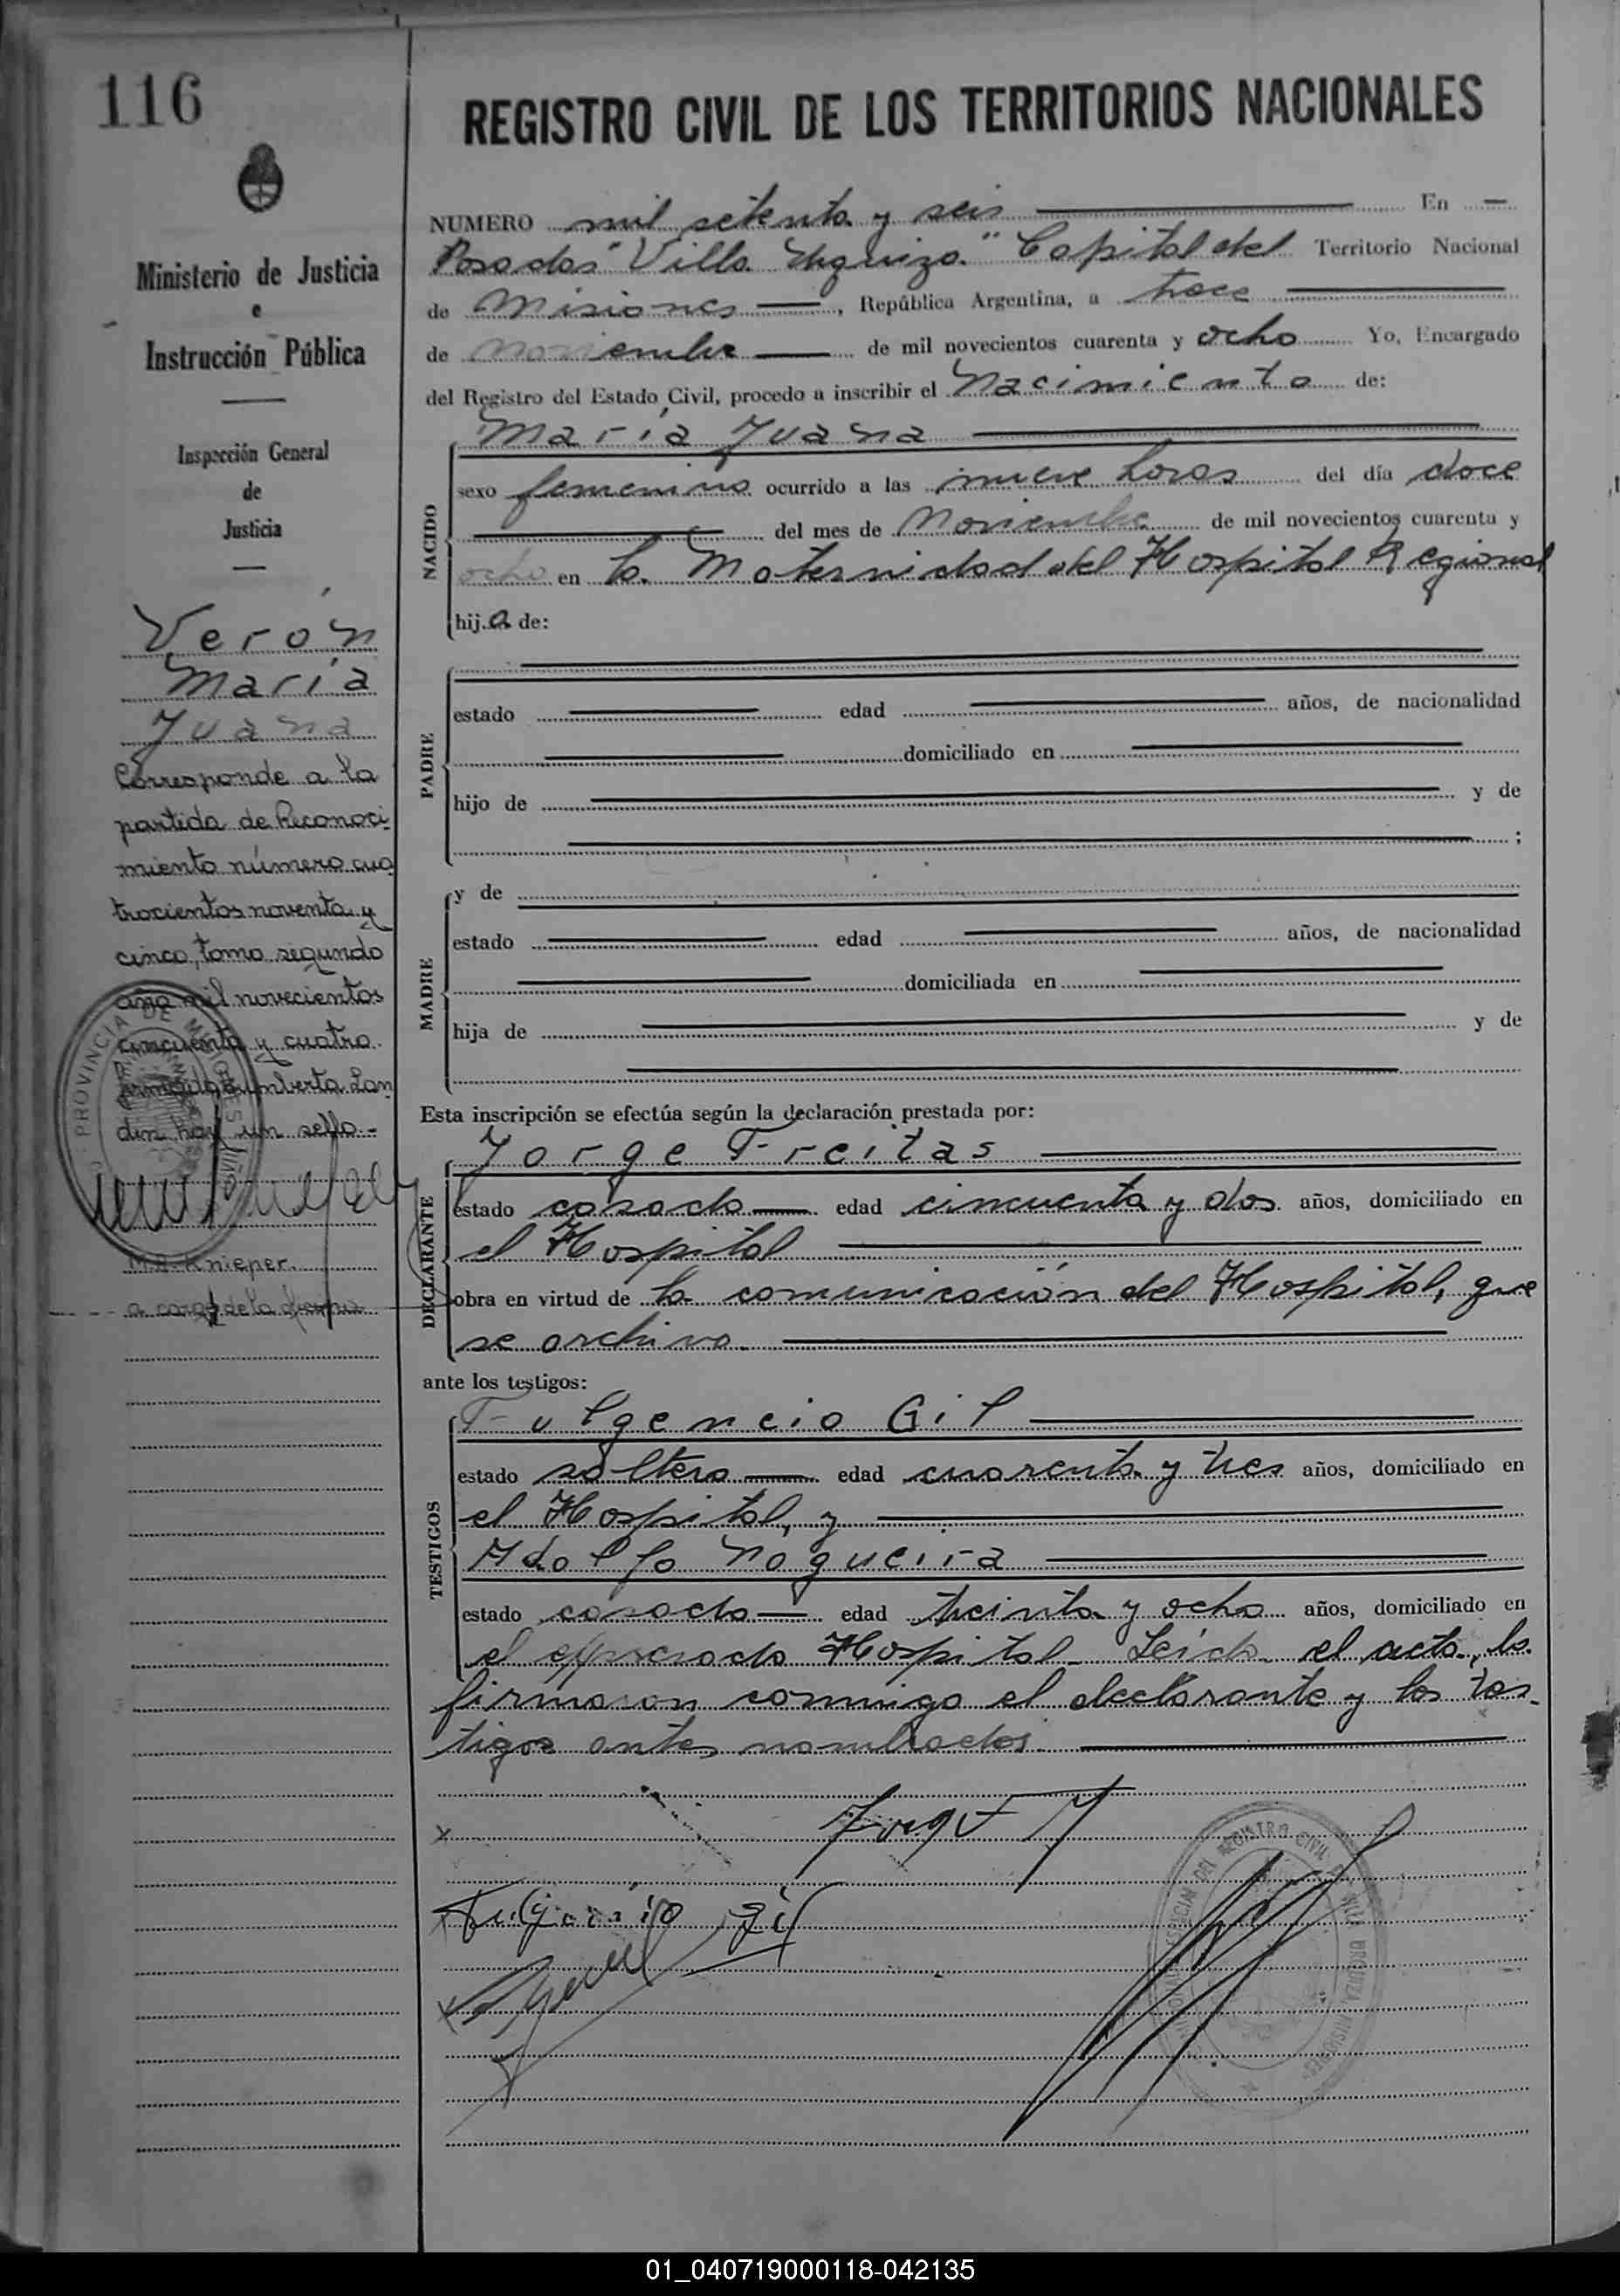 116
REGISTRO CIVIL DE LOS TERRITORIOS NACIONALES
Ministerio de Justicia
e
Instrucción Pública
Inspección General
de
Justicia
Verón
María
Juana
Corresponde a la
partida de Reconoci-
miento número cua
trocientos noventa y
cinco, tomo segundo
año mil novecientos
cincuenta y cuatro.
din, hay un sello.-
M. A. Knieper.
a cargo de la
PROVINCIA DE MISIONES
NUMERO mil setenta y seis En
Posadas "Villa Urquiza." Capital del Territorio Nacional
de Misiones, República Argentina, a trece
de Noviembre de mil novecientos cuarenta y ocho Yo, Encargado
del Registro del Estado Civil, procedo a inscribir el Nacimiento de:
NACIDO
María Juana
sexo femenino ocurrido a las nueve horas del día doce
del mes de Noviembre de mil novecientos cuarenta y
ocho en la Maternidad del Hospital Regional
hija de:
PADRE
estado edad años, de nacionalidad
domiciliado en
hijo de y de
;
MADRE
y de
estado edad años, de nacionalidad
domiciliada en
hija de y de
Esta inscripción se efectúa según la declaración prestada por:
DECLARANTE
Jorge Freitas
estado casado edad cincuenta y dos años, domiciliado en
el Hospital
obra en virtud de la comunicación del Hospital, que
se archiva.
ante los testigos:
TESTIGOS
Fulgencio Gil
estado soltero edad cuarenta y tres años, domiciliado en
el Hospital, y
Adolfo Nogueira
estado casado edad treinta y ocho años, domiciliado en
el expresado Hospital. Leída el acta, la
firmaron conmigo el declarante y los tes-
tigos antes nombrados.
Jorge F
Fulgencio Gil
DEL REGISTRO CIVIL VILLA URQUIZA MISIONES
01_040719000118-042135